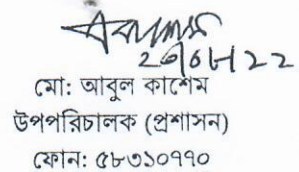 ২৩/০৮/২২
মো: আবুল কাশেম
উপপরিচালক (প্রশাসন)
ফোন: ৫৮৩১০৭৭০